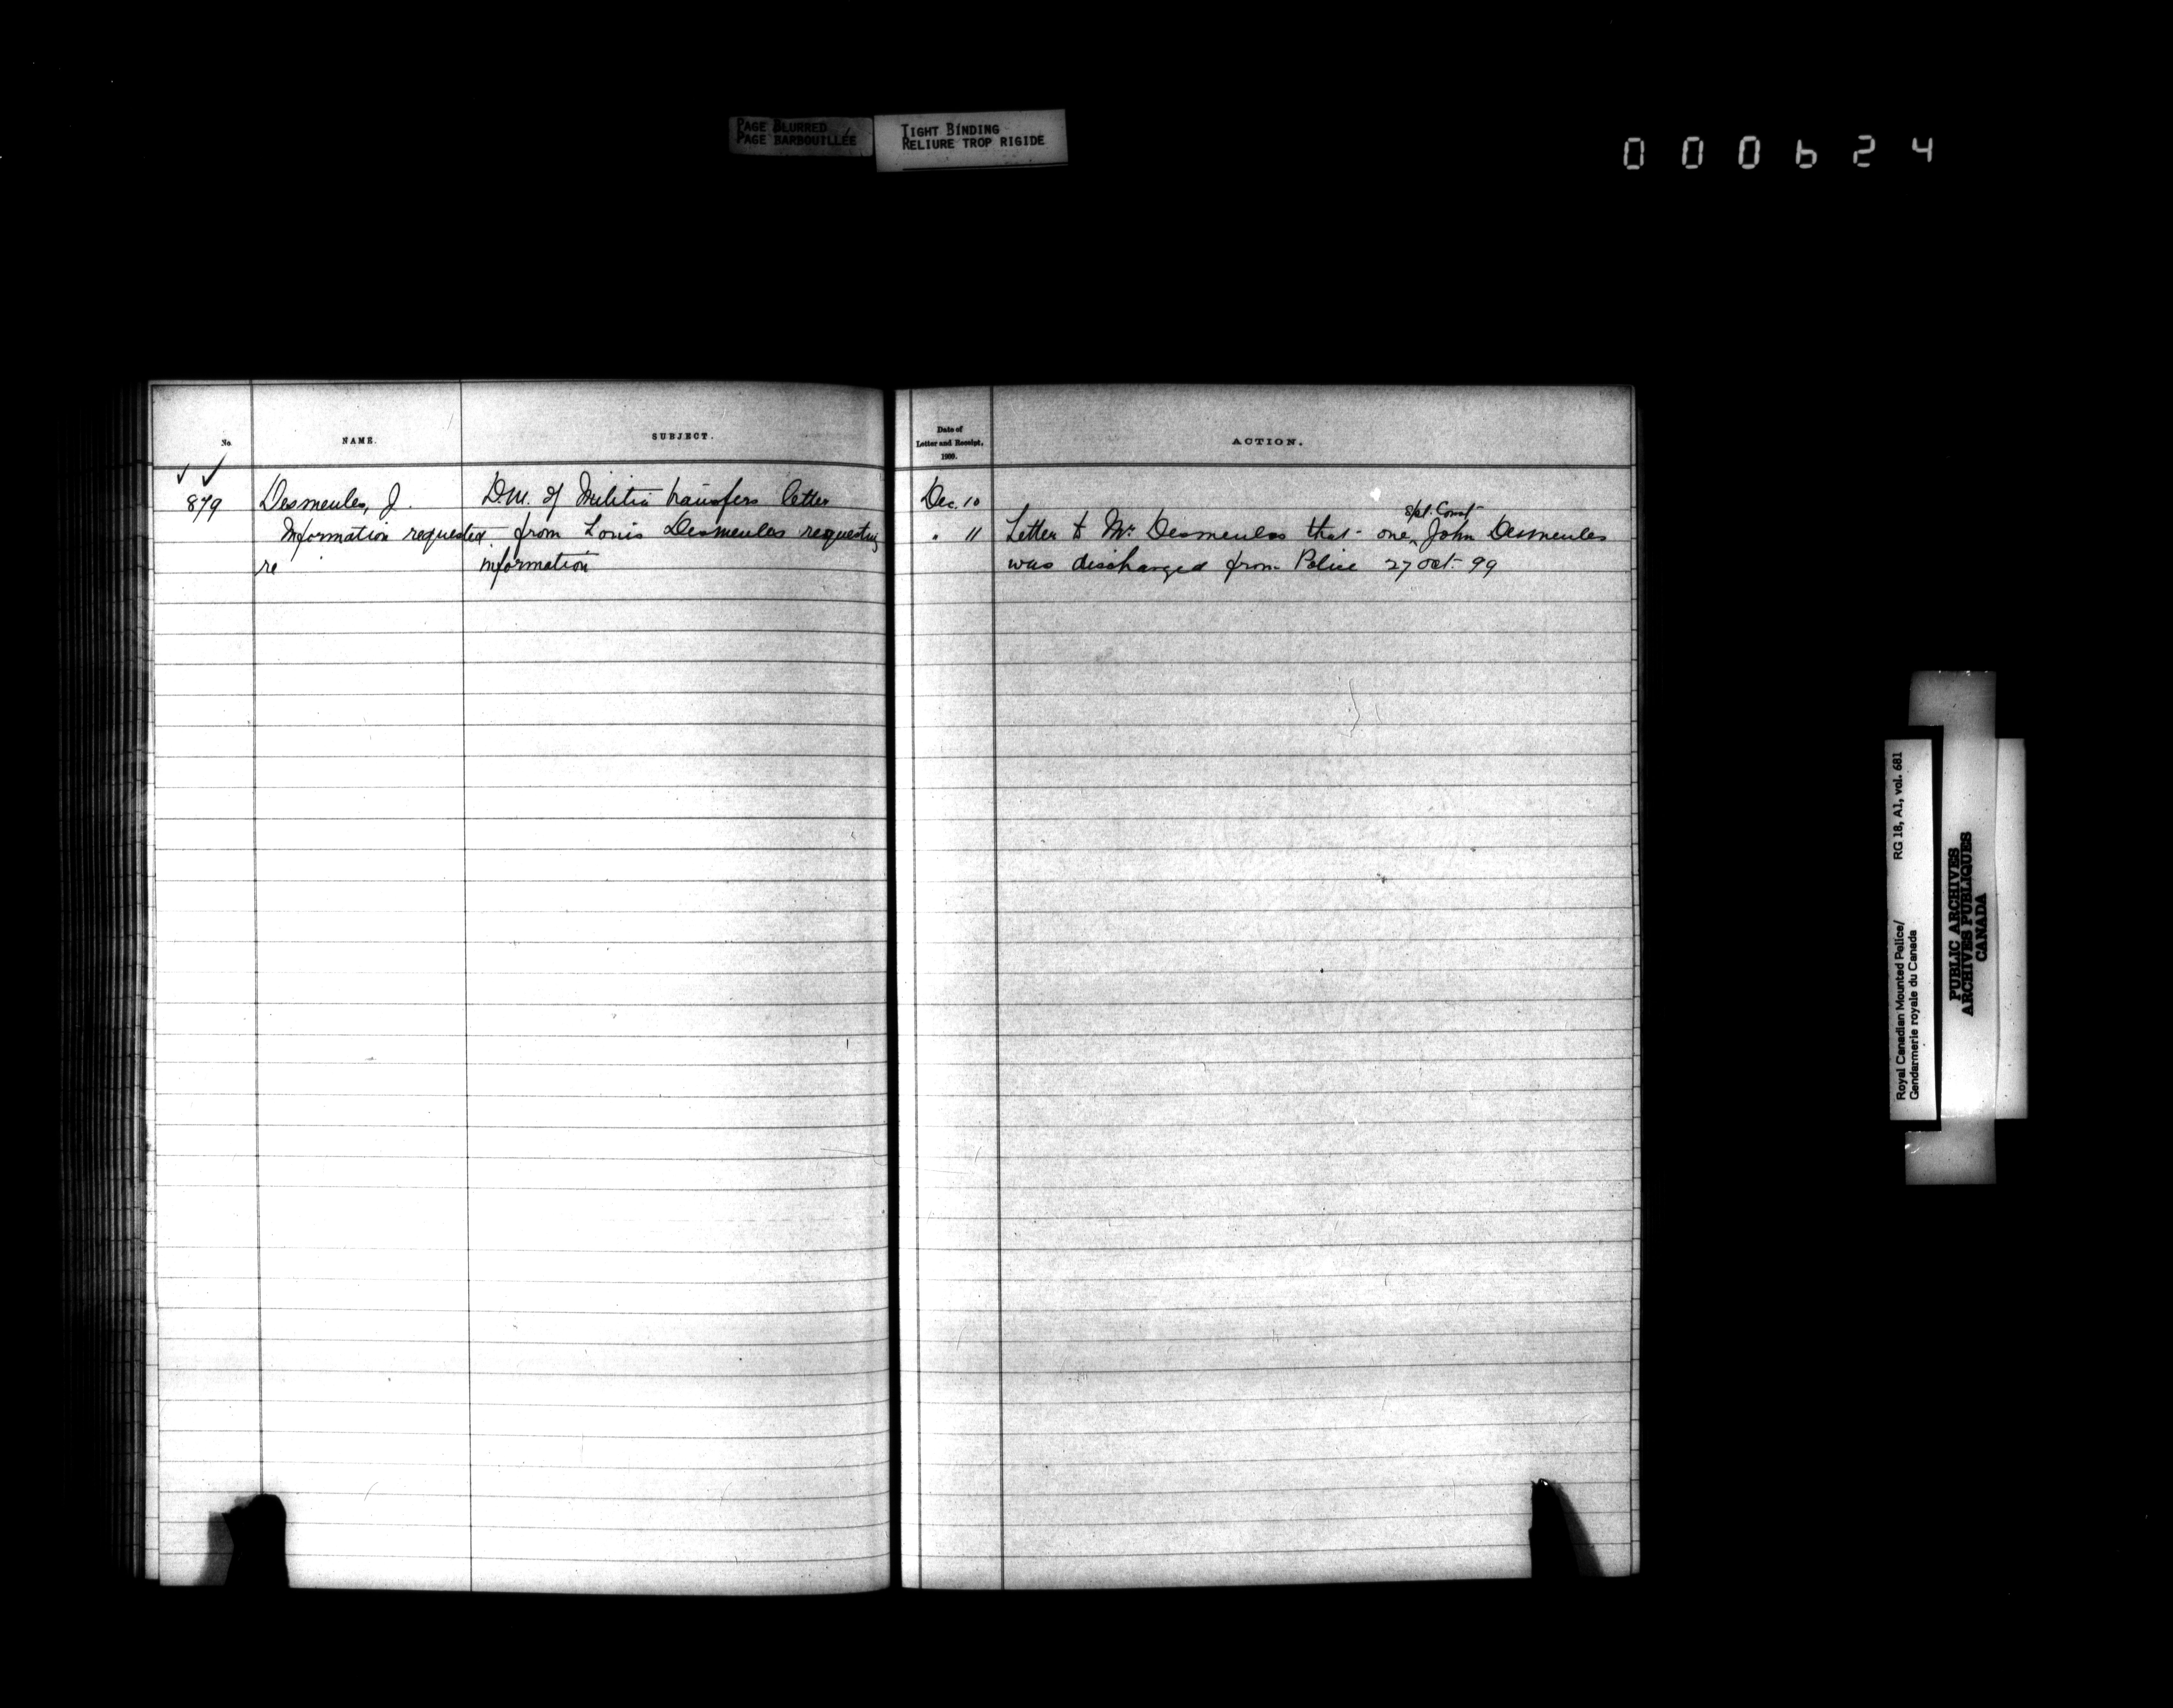 PAGE BLURRED
PAGE BARBOUILLÉE
TIGHT BINDING
RELIURE TROP RIGIDE
000624
No.
NAME.
SUBJECT.
Date of
Letter and Receipt,
1900.
ACTION.
879 Desmeules, J. D.M. of Militia transfers letter Dec. 10
Information requested from Louis Desmeules requesting " 11 Letter to Mr. Desmeules that one Spl. Const John Desmeules
re information was discharged from Police 27 Oct. 99
Royal Canadian Mounted Police/ RG 18, A1, vol. 681
Gendarmerie royale du Canada
PUBLIC ARCHIVES
ARCHIVES PUBLIQUES
CANADA